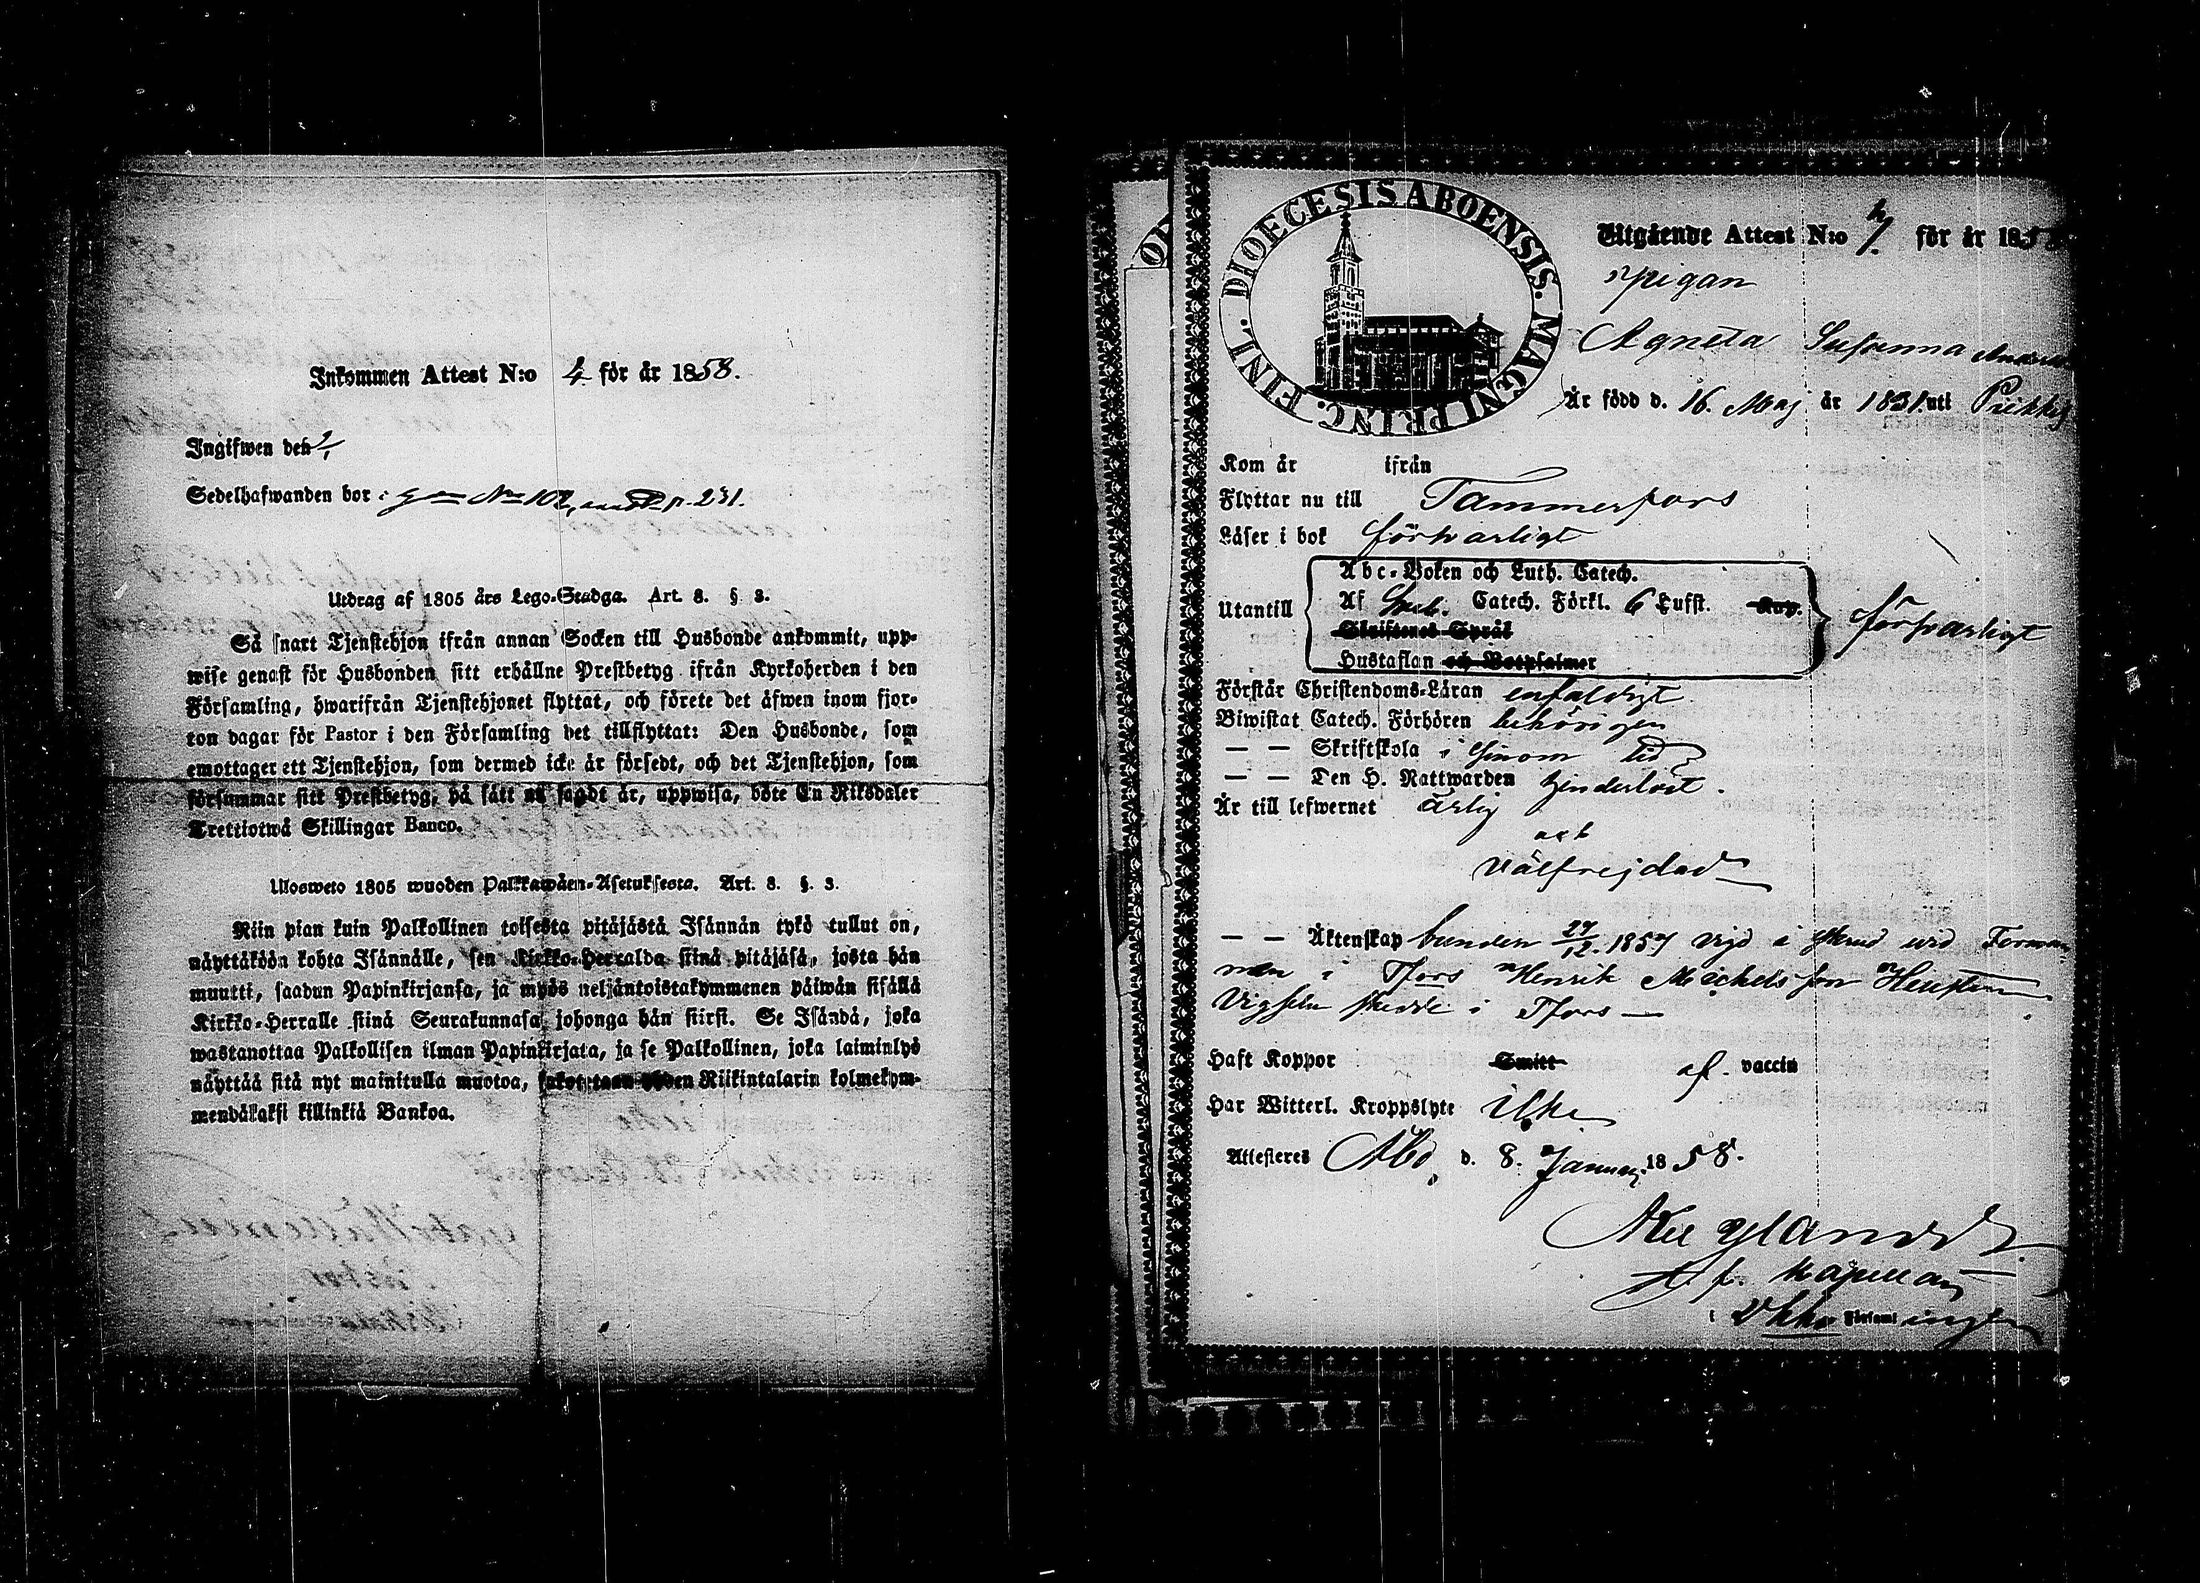 Inkommen Attest N:o 4 för år 1858.
Ingifwen den
Sedelhafwanden bor: No 102, p. 231.
Utdrag af 1805 års Lego-Stadga. Art. 8. § 3.
Så snart Tjenstehjon ifrån annan Socken till Husbonde ankommit, upp-
wise genast för Husbonden sitt erhållne Prestbetyg ifrån Kyrkoherden i den
Församling, hwarifrån Tjenstehjonet flyttat, och förete det äfwen inom fjor-
ton dagar för Pastor i den Församling det tillflyttat: Den Husbonde, som
emottager ett Tjenstehjon, som dermed icke är försedt, och det Tjenstehjon, som
försummar sitt Prestbetyg, på sätt nu sagdt är, uppwisa, böte En Riksdaler
Trettiotwå Skillingar Banco.
Uloswеto 1805 wuoden Palkkawäen-Asetuksesta. Art. 8. §. 3.
Niin pian kuin Palkollinen toisesta pitäjästä Isännän tykö tullut on,
näyttäköön kohta Isännälle, sen Kirkko-Herralda siinä pitäjäsä, josta hän
muutti, saadun Papinkirjansa, ja myös neljäntoistakymmenen päiwän sisällä
Kirkko-Herralle siinä Seurakunnasa, johonga hän siirsi. Se Isändä, joka
wastanottaa Palkollisen ilman Papinkirjata, ja se Palkollinen, joka laiminlyö
näyttää sitä nyt mainitulla muotoa, sakotetaan yhden Riikintalarin kolmekym-
mendäkaksi killinkiä Bankoa.
DIOECESIS ABOENSIS. MAGNI PRINC. FINL.
Utgående Attest N:o 7. för år 185
Pigan
Agneta Susanna
Är född d. 16. Maj år 1831. uti
Kom år ifrån
Flyttar nu till Tammerfors
Läser i bok försvarligt
Utantill
Abc-Boken och Luth. Catech.
Af Sveb. Catech. Förkl. 6 Lufst. Kap.
Skriftenes Språk
Hustaflan och Botpsalmer
försvarligt
Förstår Christendoms-Läran enfaldigt.
Biwistat Catech. Förhören behörigen
— — Skriftskola i sinom tid
— — Den H. Nattwarden hinderlöst.
Är till lefwernet ärlig
och
välfrejdad
— — Äktenskap bunden 27/12. 1857 vigd i
i Tfors Henrik Michelsson
Vigseln skedde i Tfors —
Haft Koppor Smitt af. vaccin
Har Witterl. Kroppslyte icke
Attesteras Åbo, d. 8. Januari 1858.
f. Kapellan
i Församlingen